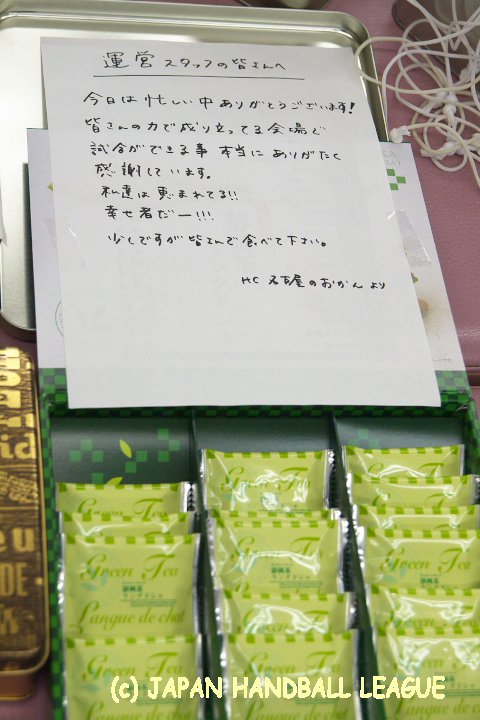 運営スタッフの皆さんへ
今日は忙しい中ありがとうございます!
皆さんの力で成り立ってる会場で
試合ができる事 本当に ありがたく
感謝しています。
私達は恵まれてる!!
幸せ者だー!!!
少しですが皆さんで食べて下さい。
HC 名古屋のおかん より
Green Tea
Green Tea
Green Tea
Green Tea
Green Tea
静岡茶
ラングドシャ
Green Tea
Langue de chat
Green Tea
Green Tea
Green Tea
(c) JAPAN HANDBALL LEAGUE